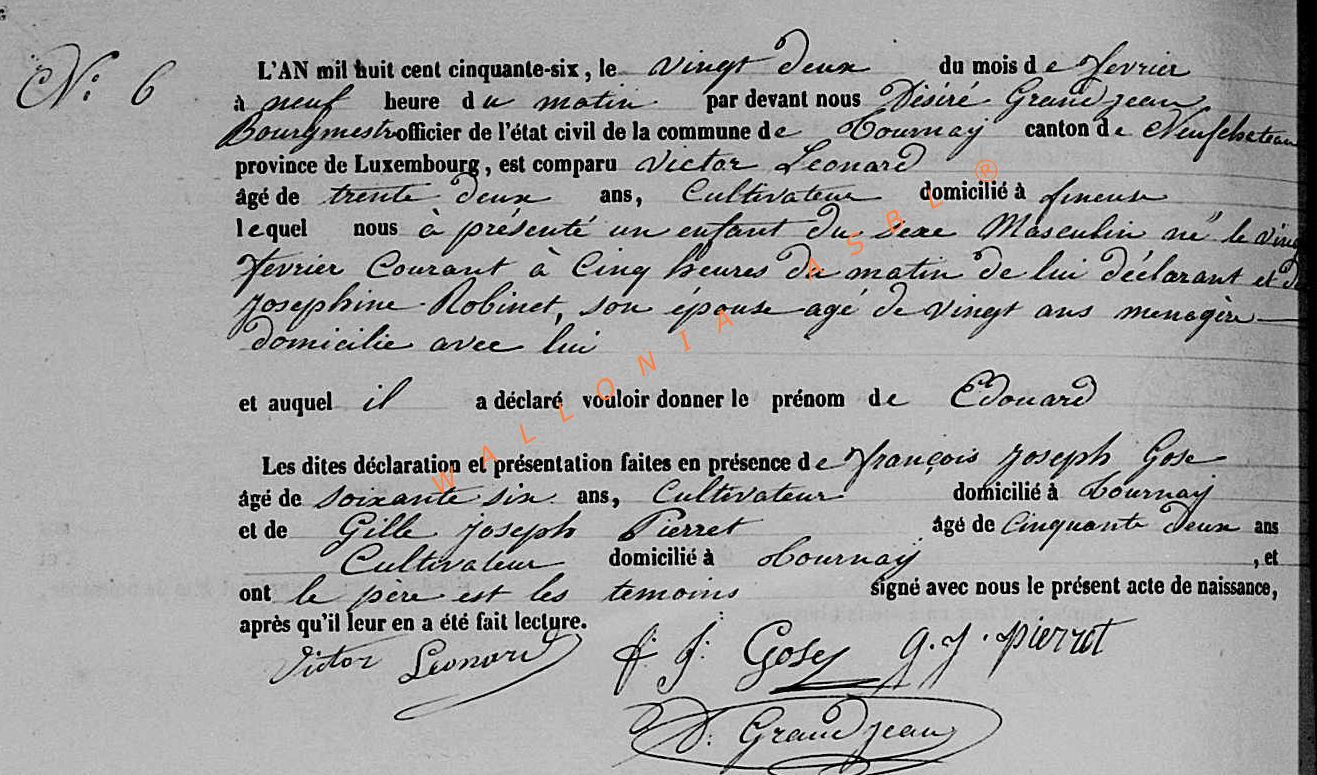 N.° 6
L'AN mil huit cent cinquante-six, le vingt deux du mois de fevrier
à neuf heure du matin par devant nous Désiré Grandjean
Bourgmestr officier de l'état civil de la commune de Tournay canton de Neufchateau
province de Luxembourg, est comparu Victor Leonard
âgé de trente deux ans, Cultivateur domicilié à
lequel nous à présenté un enfant du sexe Masculin né le ving
fevrier Courant à Cinq heures du matin de lui déclarant et de
Josephine Robinet, son épouse agé de vingt ans menagère
domicilie avec lui
et auquel il a déclaré vouloir donner le prénom de Edouard
Les dites déclaration et présentation faites en présence de françois joseph Gose
âgé de soixante six ans, Cultivateur domicilié à Tournay
et de Gille joseph Pierret âgé de Cinquante deux ans
Cultivateur domicilié à Tournay , et
ont le père est les temoins signé avec nous le présent acte de naissance,
après qu'il leur en a été fait lecture.
Victor Leonard f. J. Gosy g. J. pierret
D. Grandjean
WALLONIA ASBL ®